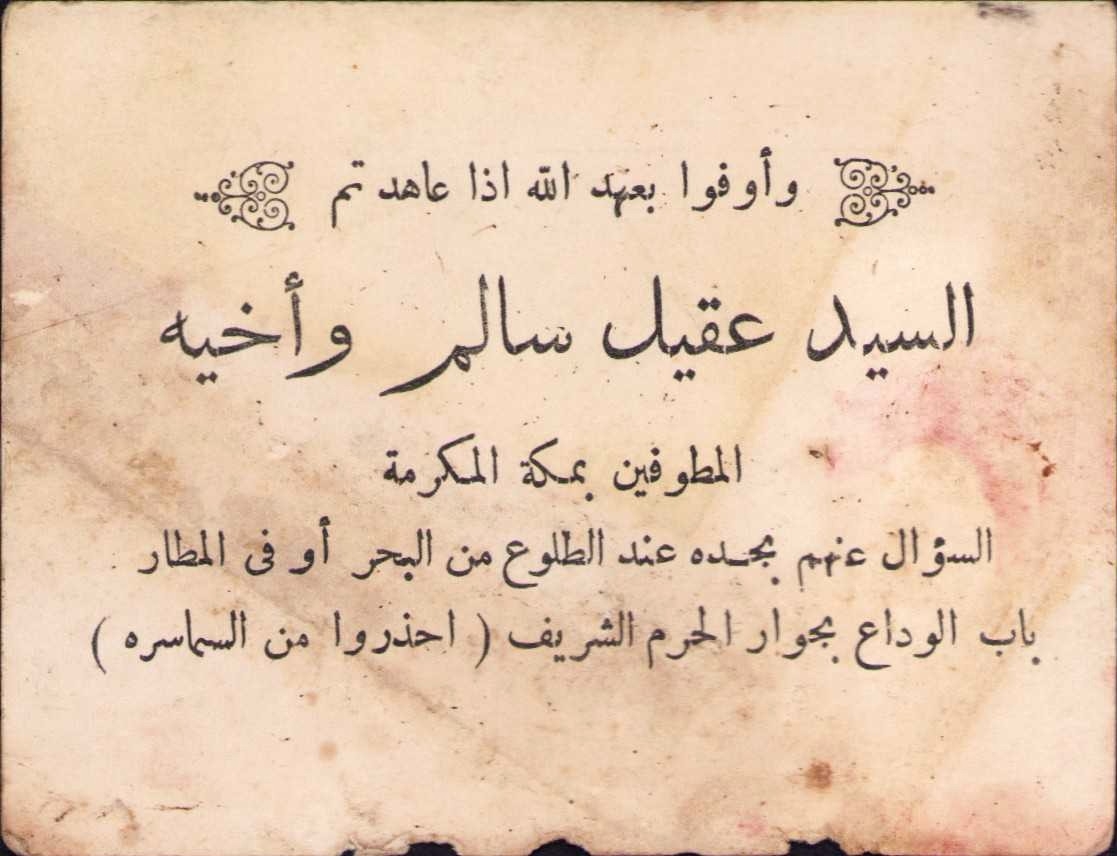 وأوفوا بعهد الله اذا عاهدتم
السيد عقيل سالم وأخيه
المطوفين بمكة المكرمة
السؤال عنهم بجده عند الطلوع من البحر أو فى المطار
باب الوداع بجوار الحرم الشريف ( احذروا من السماسره )